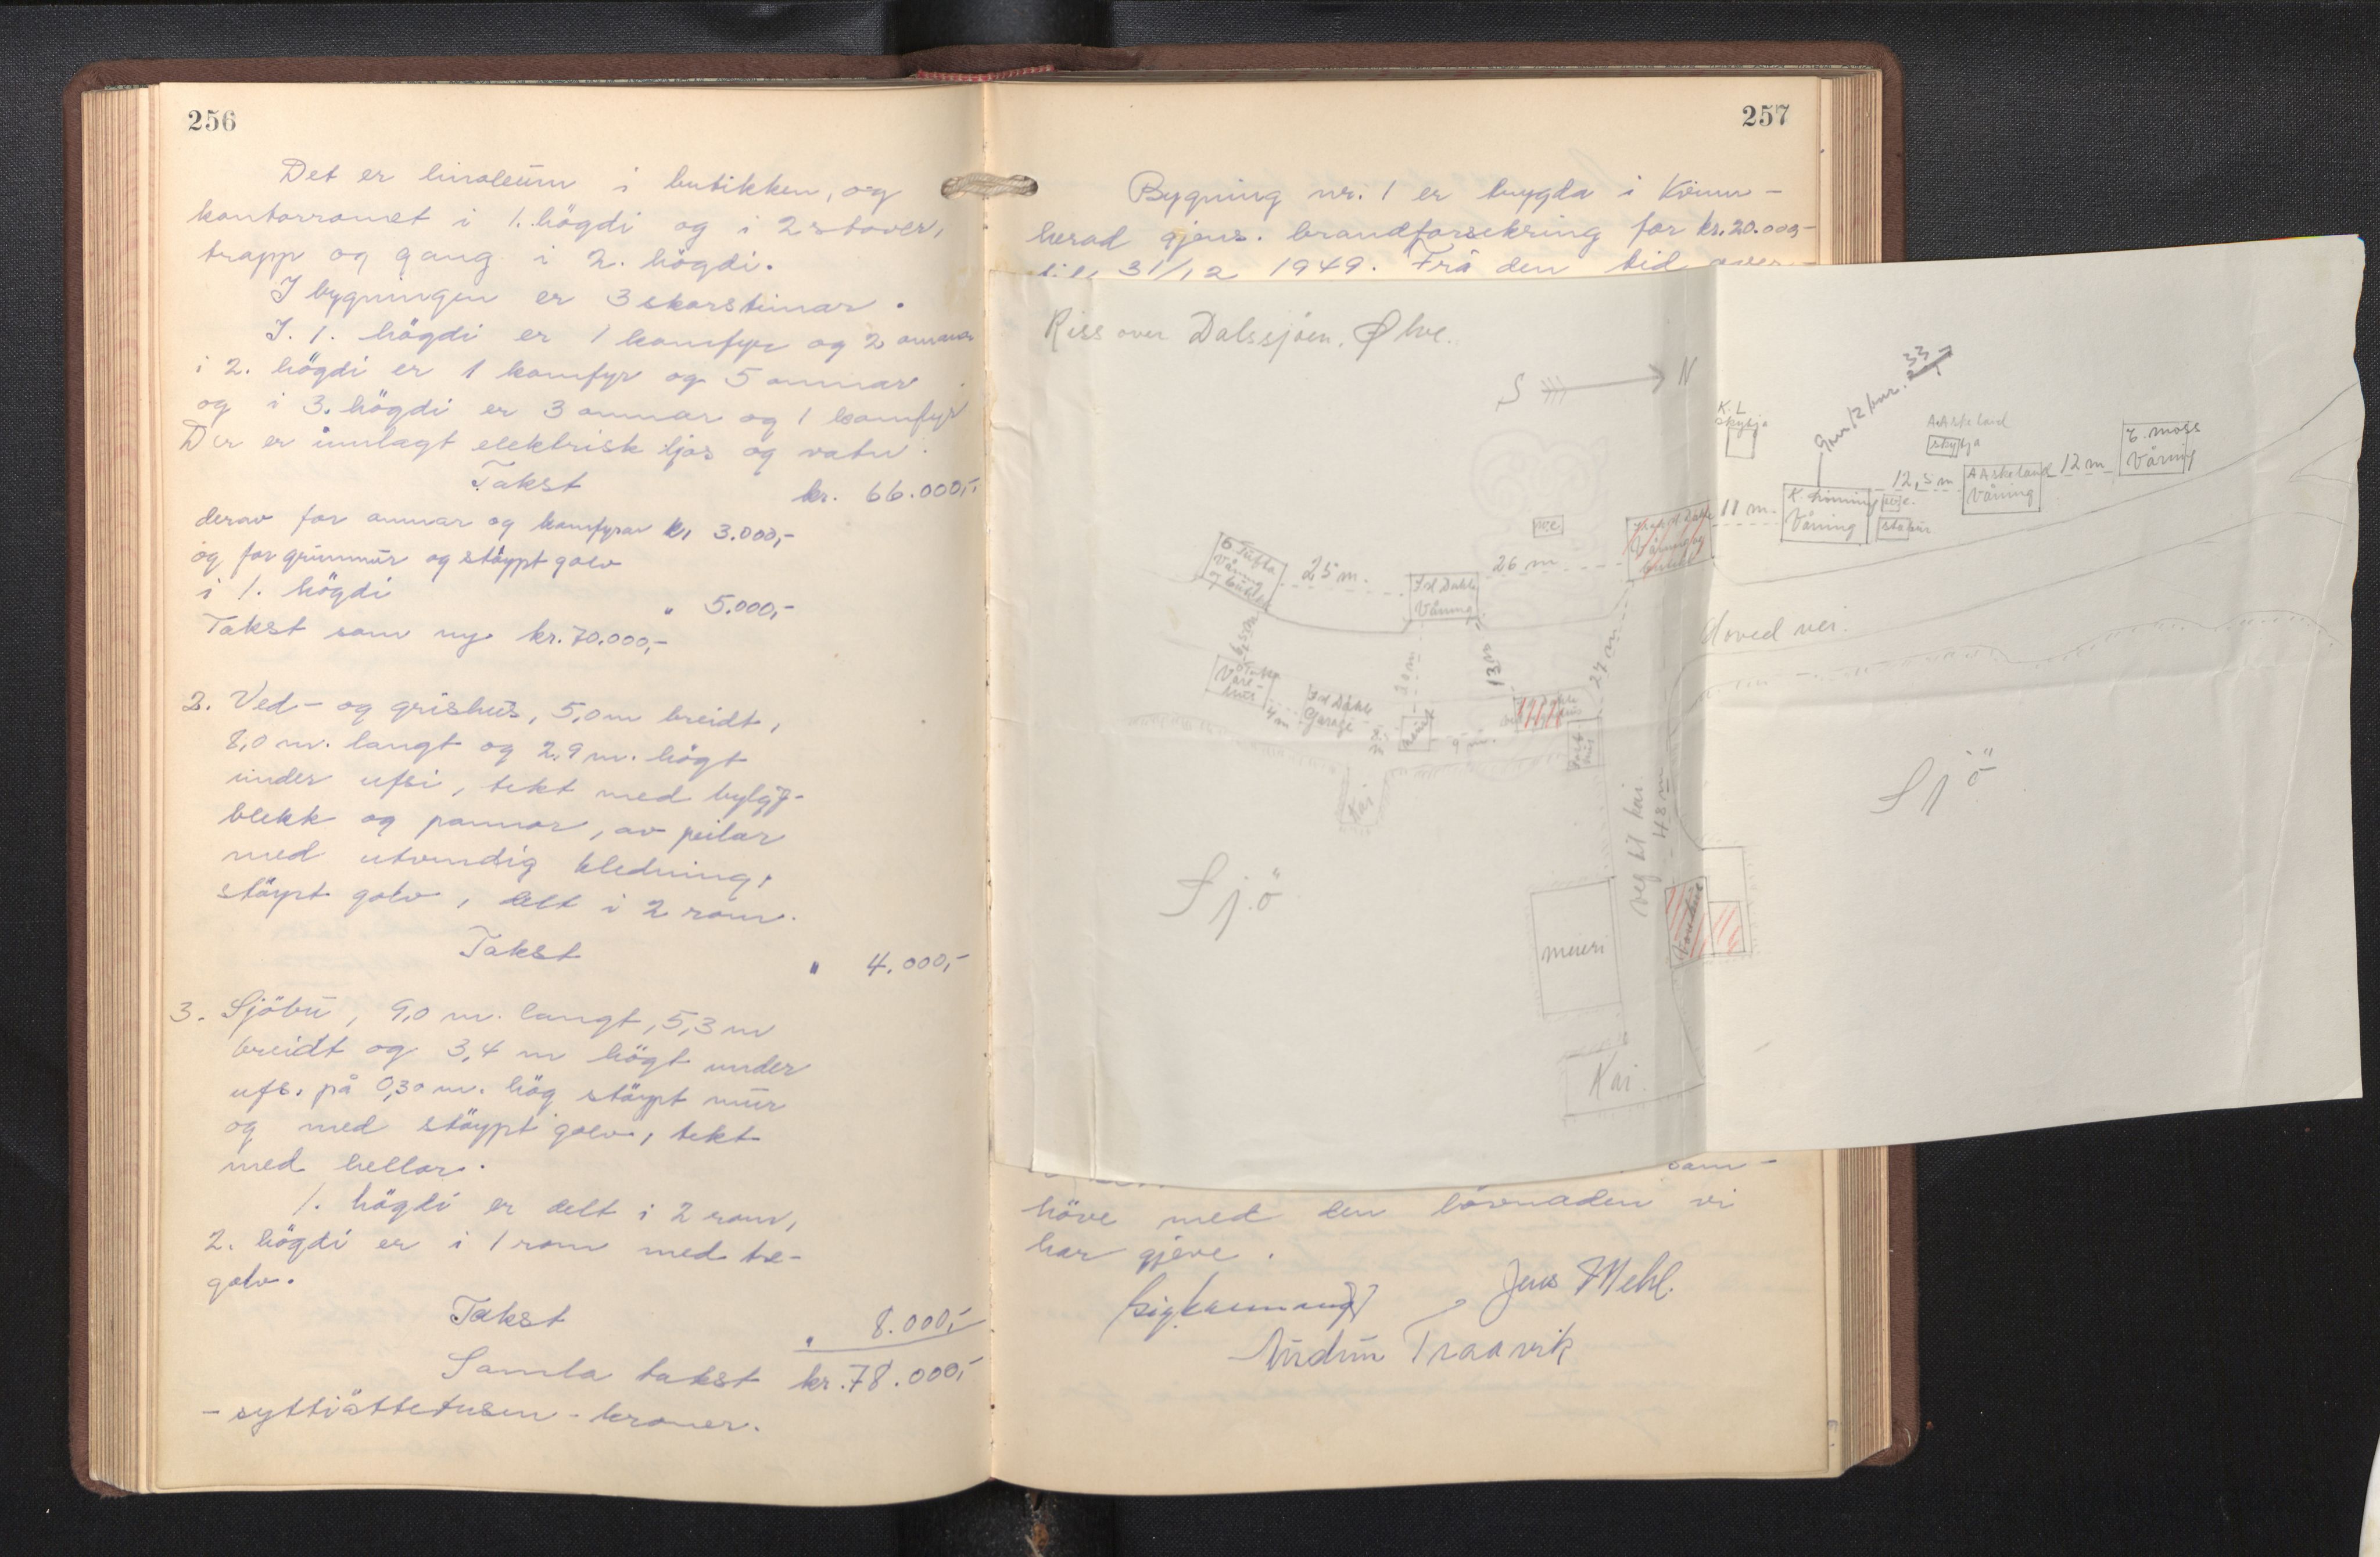 256
Det er linoleum i butikken, og
kontorromet i 1. högdi og i 2 stover,
trapp og gang i 2. högdi.
I bygningen er 3 skorsteinar.
I. 1. högdi er 1 komfyr og 2 omnar
i 2. högdi er 1 komfyr og 5 omnar
og i 3. högdi er 3 omnar og 1 komfyr
Der er innlagt elektrisk ljos og vatn.
Takst kr. 66.000,-
derav for omnar og komfyrar kr 3.000,-
og for grunnmur og støypt golv
i 1. högdi " 5.000,-
Takst som ny kr. 70.000,-
2. Ved- og grishus, 5,0 m breidt,
8,0 m. langt og 2,9 m. högt
under ufsi, tekt med bylgj-
blekk og pannor, av peilar
med utvendig kledning,
støypt golv, delt i 2 rom.
Takst " 4.000,-
3. Sjöbu, 9,0 m. langt, 5,3 m
breidt og 3,4 m högt under
ufs. på 0,30 m. hög støypt mur
og med støypt golv, tekt
med hellor.
1. högdi er delt i 2 rom,
2. högdi er i 1 rom med tre-
golv.
Takst " 8.000,-
Samla takst kr. 78.000,-
- syttiåttetusen - kroner.
257
Bygning nr. 1 er trygda i Kvinn-
herad gjens. brandforsekring for kr. 20.000,-
til 31/12 1949. Frå den tid
Riss over Dalssjøen, Ølve.
S N
K. L
Skykja
Gnr 12 bnr. 33
A. Askeland
skykja
E. Moss
Våning
12 m
A. Askeland
Våning
12,5 m
K.
Våning
stabur
11 m.
Våning og
butikk
26 m
J. d. Dahle
Våning
25 m.
G. Tufta
Våning
og butikk
Vare-
hus
4 m
J. d. Dahle
Garage
20 m
13 m
9 m.
27 m
Kai
Hoved vei.
Sjö
Sjö
veg til kai.
48 m
meieri
Varehus
Kai.
sam-
höve med den lovnaden vi
har gjeve.
Jens Mehl.
Audun Traavik